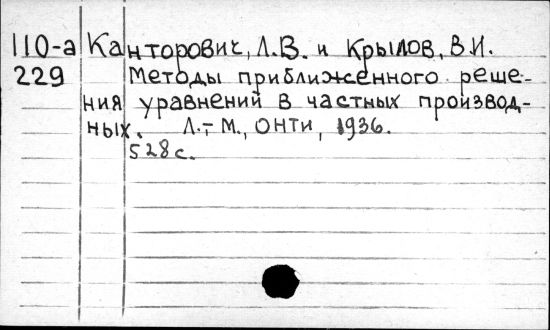 110-а Канторович, Л.В. и Крылов, В.И.
229 Методы приближенного реше-
ния уравнений в частных производ-
ных. Л.-М., ОНТИ, 1936.
528 с.